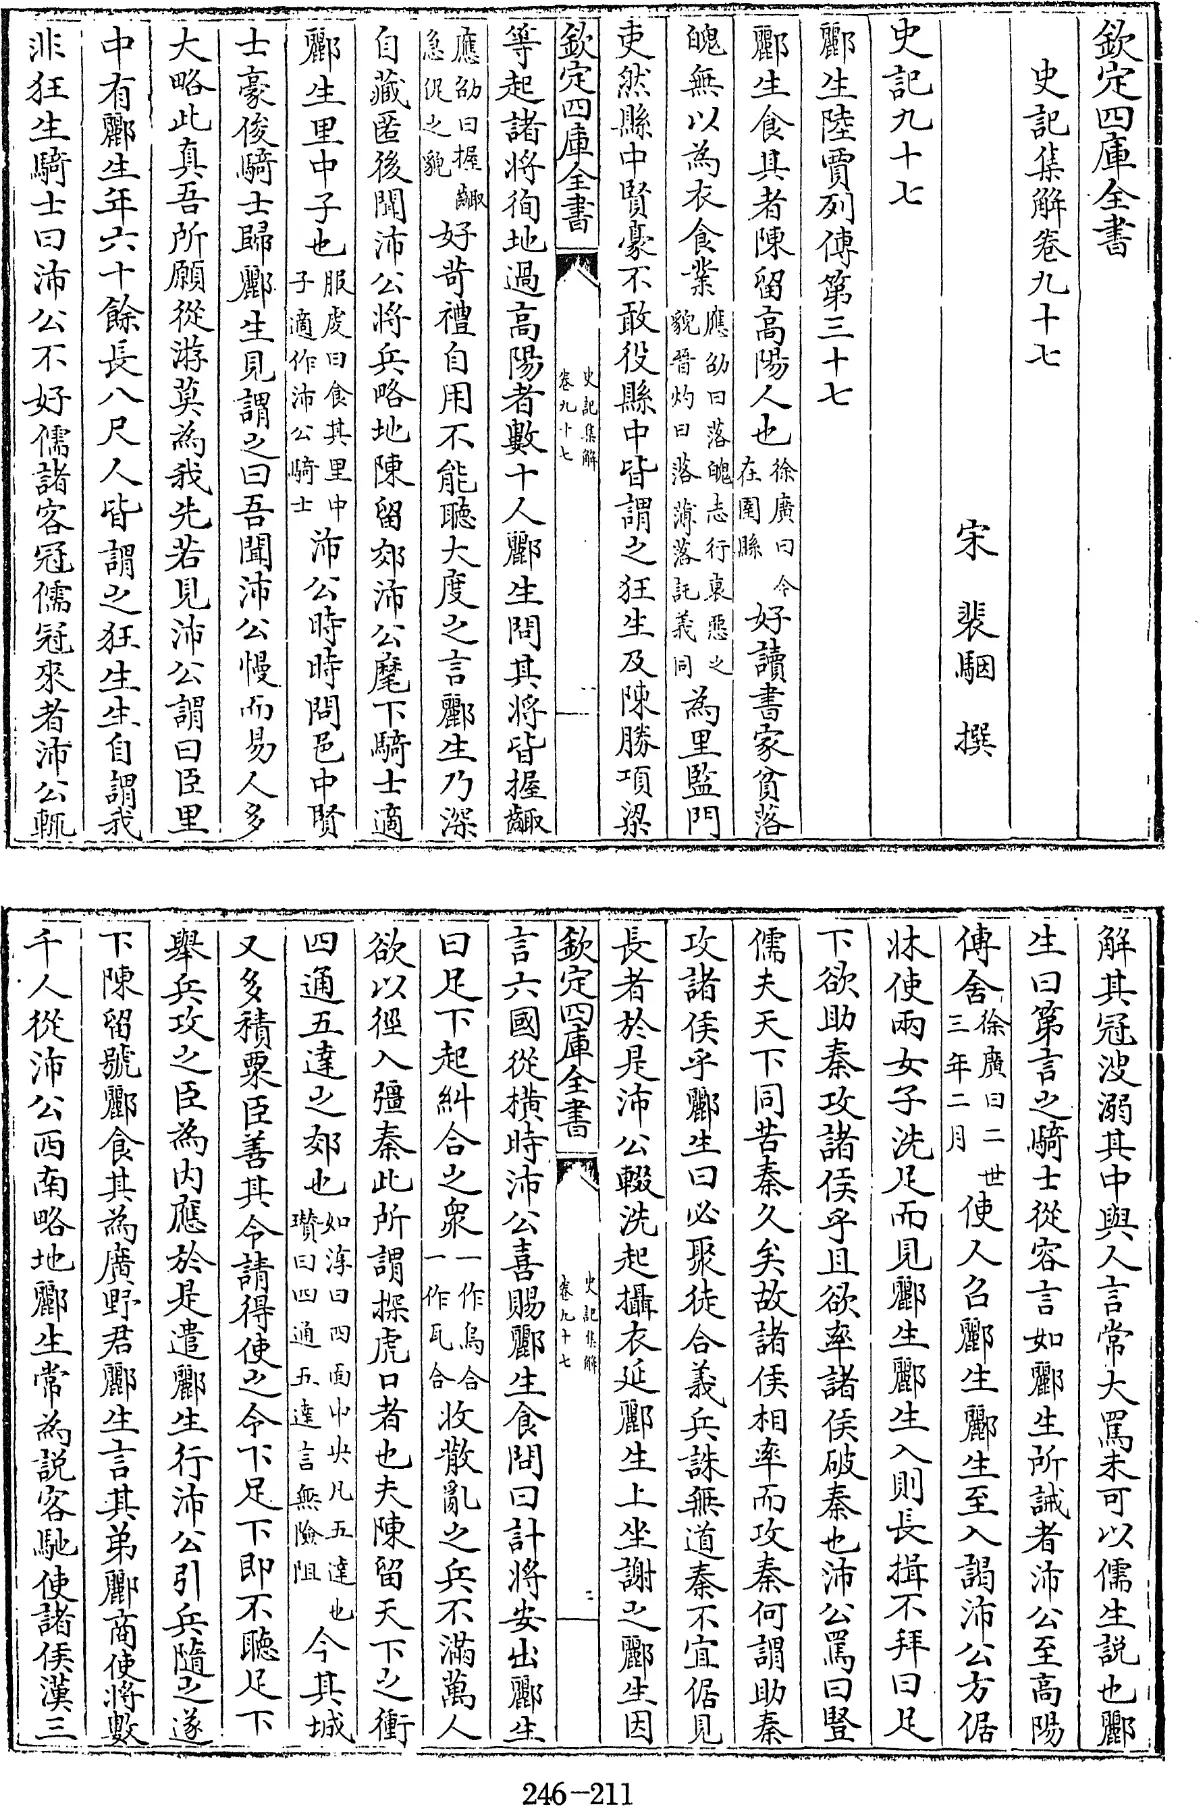 欽定四庫全書
史記集解卷九十七
宋 裴駰 撰
史記九十七
酈生陸賈列傳第三十七
酈生食其者陳留高陽人也徐廣曰今在圉縣好讀書家貧落
魄無以為衣食業應劭曰落魄志行衰惡之貌晉灼曰落薄落託義同為里監門
吏然縣中賢豪不敢役縣中皆謂之狂生及陳勝項梁
欽定四庫全書 史記集解卷九十七 一
等起諸將徇地過高陽者數十人酈生問其將皆握齱
應劭曰握齱急促之貌好苛禮自用不能聽大度之言酈生乃深
自藏匿後聞沛公將兵略地陳留郊沛公麾下騎士適
酈生里中子也服虔曰食其里中子適作沛公騎士沛公時時問邑中賢
士豪俊騎士歸酈生見謂之曰吾聞沛公慢而易人多
大略此真吾所願從游莫為我先若見沛公謂曰臣里
中有酈生年六十餘長八尺人皆謂之狂生生自謂我
非狂生騎士曰沛公不好儒諸客冠儒冠來者沛公輒
解其冠溲溺其中與人言常大罵未可以儒生說也酈
生曰第言之騎士從容言如酈生所誡者沛公至高陽
傳舍徐廣曰二世三年二月使人召酈生酈生至入謁沛公方倨
牀使兩女子洗足而見酈生酈生入則長揖不拜曰足
下欲助秦攻諸侯乎且欲率諸侯破秦也沛公罵曰豎
儒夫天下同苦秦久矣故諸侯相率而攻秦何謂助秦
攻諸侯乎酈生曰必聚徒合義兵誅無道秦不宜倨見
長者於是沛公輟洗起攝衣延酈生上坐謝之酈生因
欽定四庫全書 史記集解卷九十七 二
言六國從橫時沛公喜賜酈生食問曰計將安出酈生
曰足下起糾合之衆一作烏合一作瓦合收散亂之兵不滿萬人
欲以徑入彊秦此所謂探虎口者也夫陳留天下之衝
四通五達之郊也如淳曰四面中央凡五達也瓚曰四通五達言無險阻今其城
又多積粟臣善其令請得使之令下足下即不聽足下
舉兵攻之臣為內應於是遣酈生行沛公引兵隨之遂
下陳留號酈食其為廣野君酈生言其弟酈商使將數
千人從沛公西南略地酈生常為說客馳使諸侯漢三
246-211